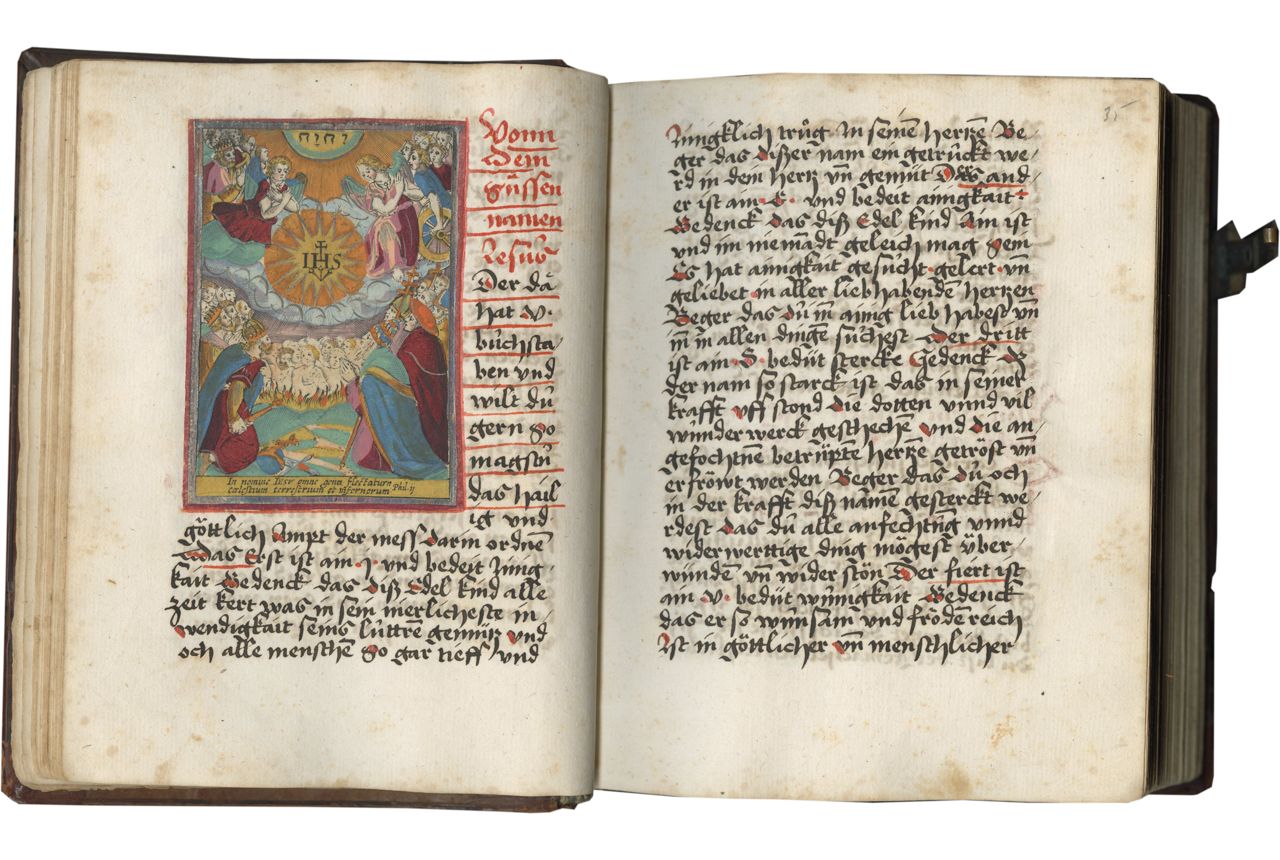 יהוה
IHS
In nomine Iesu omne genu flectatur
cœlestium terrestrium et infernorum Phil. ij
Vonn
dem
güssen
namen
Jesus
Der da
hat v.
bůchsta
ben vnd
wilt dů
gern so
magstu
das hail
ig vnd
göttlich Ampt der mess darin ordnē
Das Erst ist ain .J. vnd bedeit Jnng
kait Bedenck das diß Edel kind alle
zeit kert was in sein inerlicheste in
wendigkait seins luttrē gemütz vnd
och alle mensche so gar tieff vnd
35
Jnnigklich trůg in seinē hertzē Be
ger das dißer nam ein getruckt we
rd in dein hertz vn̄ gemüt Das and
er ist ain .E. vnd bedeit ainigkait
Bedenck das diß Edel kind Ain ist
vnd im niemādt geleich mag sein
Es hat ainigkait gesůcht gelert vn̄
geliebet in aller liebhabendē hertzen
Beger das dů in ainig lieb habest vn̄
in in allen dingē sůchest Der dritt
ist ain .S. bedüt stercke Gedenck
der nam so starck ist das in seiner
krafft vff stond die dotten vnnd vil
wunderwerck gescheche vnd die an
gefochtnē betrüpte hertzē getröst vn̄
erfröwt werden Beger das dů och
in der krafft diß name gesterckt we
rdest das dů alle anfechtūg vnnd
widerwerttige ding mögest über
wündē vn̄ wider stön Der fiert ist
ain .V. bedüt wünigkait Bedenck
das er so wunsam vnd frödē reich
Ist in göttlicher vn̄ menschlicher